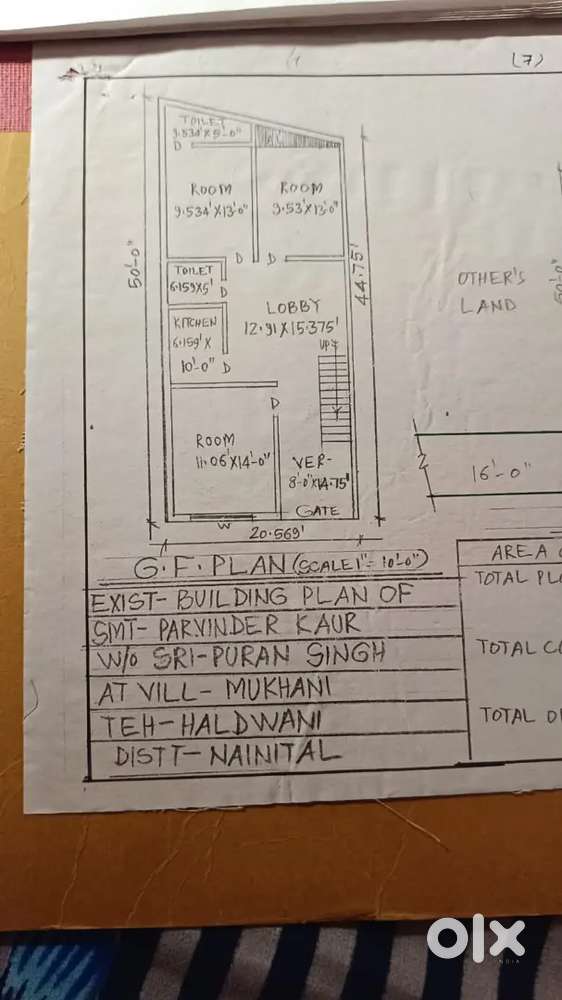 (7)
TOILET
9.534'X5'-0"
D
ROOM
9.534'X13'-0"
ROOM
9.53'X13'-0"
50'-0"
44.75'
D
D
TOILET
6.159X5'
D
KITCHEN
6.159'X
10'-0"
D
LOBBY
12.91X15.375'
UP
OTHER'S
LAND
50'-0"
D
ROOM
11.06'X14'-0"
VER-
8'-0"X14.75'
16'-0"
W
GATE
20.569'
G.F. PLAN (SCALE 1"= 10'-0")
AREA
EXIST- BUILDING PLAN OF
TOTAL
SMT- PARVINDER KAUR
W/o SRI-PURAN SINGH
TOTAL
AT VILL- MUKHANI
TEH-HALDWANI
TOTAL
DISTT- NAINITAL
olx
INDIA